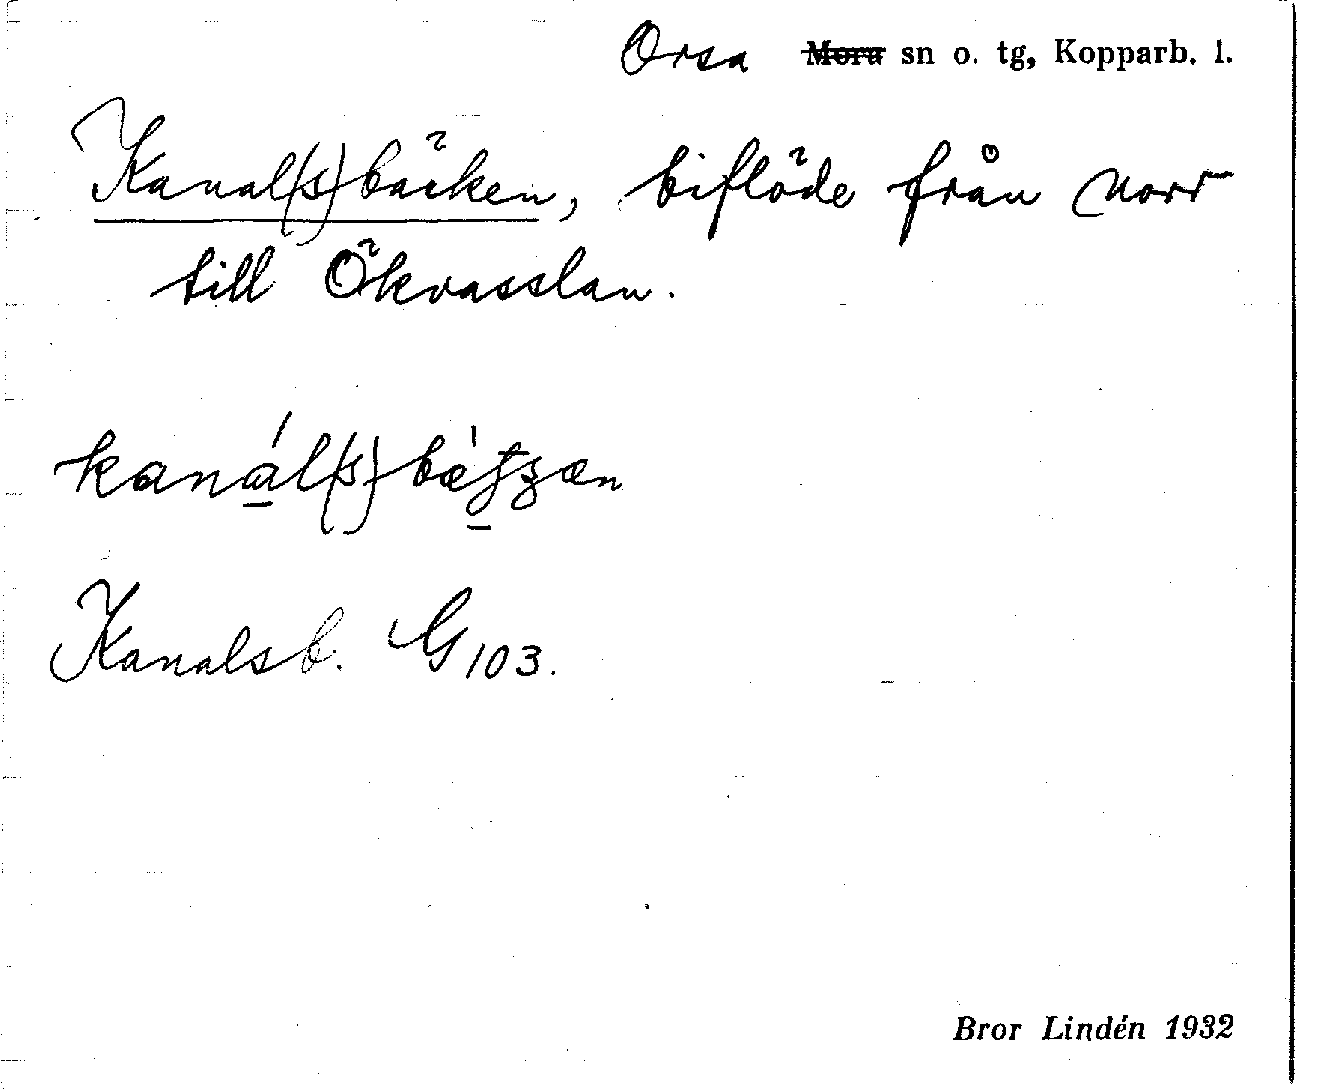 Orsa Mora sn o. tg, Kopparb. l.
Kanal(s)bäcken, biflöde från norr
till Ökvasslan.
kanál(s)
Kanalsb. G 103.
Bror Lindén 1932